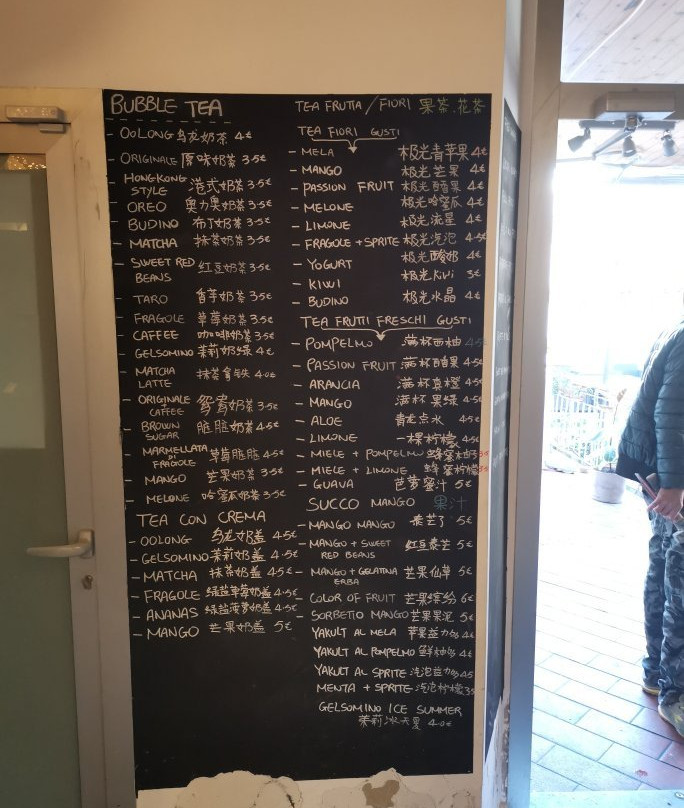 BUBBLE TEA
- OOLONG 乌龙奶茶 4€
- ORIGINALE 原味奶茶 3.5€
- HONGKONG STYLE 港式奶茶 3.5€
- OREO 奥力奥奶茶 3.5€
- BUDINO 布丁奶茶 3.5€
- MATCHA 抹茶奶茶 3.5€
- SWEET RED BEANS 红豆奶茶 3.5€
- TARO 香芋奶茶 3.5€
- FRAGOLE 草莓奶茶 3.5€
- CAFFEE 咖啡奶茶 3.5€
- GELSOMINO 茉莉奶绿 4€
- MATCHA LATTE 抹茶拿铁 4.0€
- ORIGINALE + CAFFEE 鸳鸯奶茶 3.5€
- BROWN SUGAR 脏脏奶茶 4.5€
- MARMELLATA DI FRAGOLE 草莓脏脏 4.5€
- MANGO 芒果奶茶 3.5€
- MELONE 哈蜜瓜奶茶 3.5€
TEA CON CREMA
- OOLONG 乌龙奶盖 4.5€
- GELSOMINO 茉莉奶盖 4.5€
- MATCHA 抹茶奶盖 4.5€
- FRAGOLE 绿益草莓奶盖 4.5€
- ANANAS 绿益菠萝奶盖 4.5€
- MANGO 芒果奶盖 5€
TEA FRUTTA / FIORI 果茶.花茶
TEA FIORI GUSTI
- MELA 极光青苹果 4€
- MANGO 极光芒果 4€
- PASSION FRUIT 极光百香果 4€
- MELONE 极光哈蜜瓜 4€
- LIMONE 极光流星 4€
- FRAGOLE + SPRITE 极光汽泡 4.5€
- YOGURT 极光酸奶 4€
- KIWI 极光Kiwi 3€
- BUDINO 极光水晶 4€
TEA FRUTTI FRESCHI GUSTI
- POMPELMO 满杯西柚 4.5
- PASSION FRUIT 满杯百香果 4.5€
- ARANCIA 满杯香橙 4.5€
- MANGO 满杯果绿 4.5€
- ALOE 青龙点水 4.5€
- LIMONE 一棵柠檬 4.5€
- MIELE + POMPELMO 蜂蜜柚子
- MIELE + LIMONE 蜂蜜柠檬
- GUAVA 芭萝蜜汁 5€
SUCCO MANGO 果汁
- MANGO MANGO 羕芒了 5€
- MANGO + SWEET RED BEANS 红豆羕芒 5€
- MANGO + GELATINA ERBA 芒果仙草 5€
- COLOR OF FRUIT 芒果缤纷 6€
- SORBETTO MANGO 芒果果泥 5€
YAKULT AL MELA 苹果益力多 4€
YAKULT AL POMPELMO 鲜柚多 4€
YAKULT AL SPRITE 汽泡益力多 4.5
MENTA + SPRITE 汽泡柠檬 3.5
GELSOMINO ICE SUMMER
茉莉冰天夏 4.0€